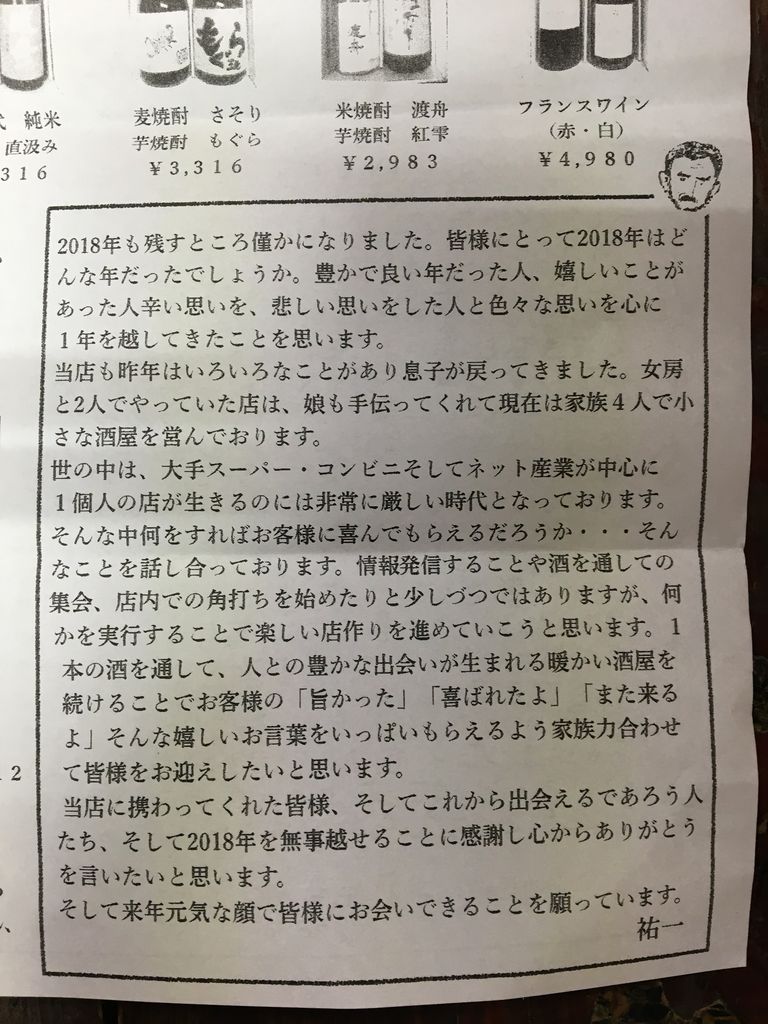 純米
直汲み
316
麦焼酎 さそり
芋焼酎 もぐら
¥3,316
米焼酎 渡舟
芋焼酎 紅雫
¥2,983
フランスワイン
(赤・白)
¥4,980
2018年も残すところ僅かになりました。皆様にとって2018年はど
んな年だったでしょうか。豊かで良い年だった人、嬉しいことが
あった人辛い思いを、悲しい思いをした人と色々な思いを心に
1年を越してきたことを思います。
当店も昨年はいろいろなことがあり息子が戻ってきました。女房
と2人でやっていた店は、娘も手伝ってくれて現在は家族4人で小
さな酒屋を営んでおります。
世の中は、大手スーパー・コンビニそしてネット産業が中心に
1個人の店が生きるのには非常に厳しい時代となっております。
そんな中何をすればお客様に喜んでもらえるだろうか・・・そん
なことを話し合っております。情報発信することや酒を通しての
集会、店内での角打ちを始めたりと少しづつではありますが、何
かを実行することで楽しい店作りを進めていこうと思います。1
本の酒を通して、人との豊かな出会いが生まれる暖かい酒屋を
続けることでお客様の「旨かった」「喜ばれたよ」「また来る
よ」そんな嬉しいお言葉をいっぱいもらえるよう家族力合わせ
て皆様をお迎えしたいと思います。
当店に携わってくれた皆様、そしてこれから出会えるであろう人
たち、そして2018年を無事越せることに感謝し心からありがとう
を言いたいと思います。
そして来年元気な顔で皆様にお会いできることを願っています。
祐一
2